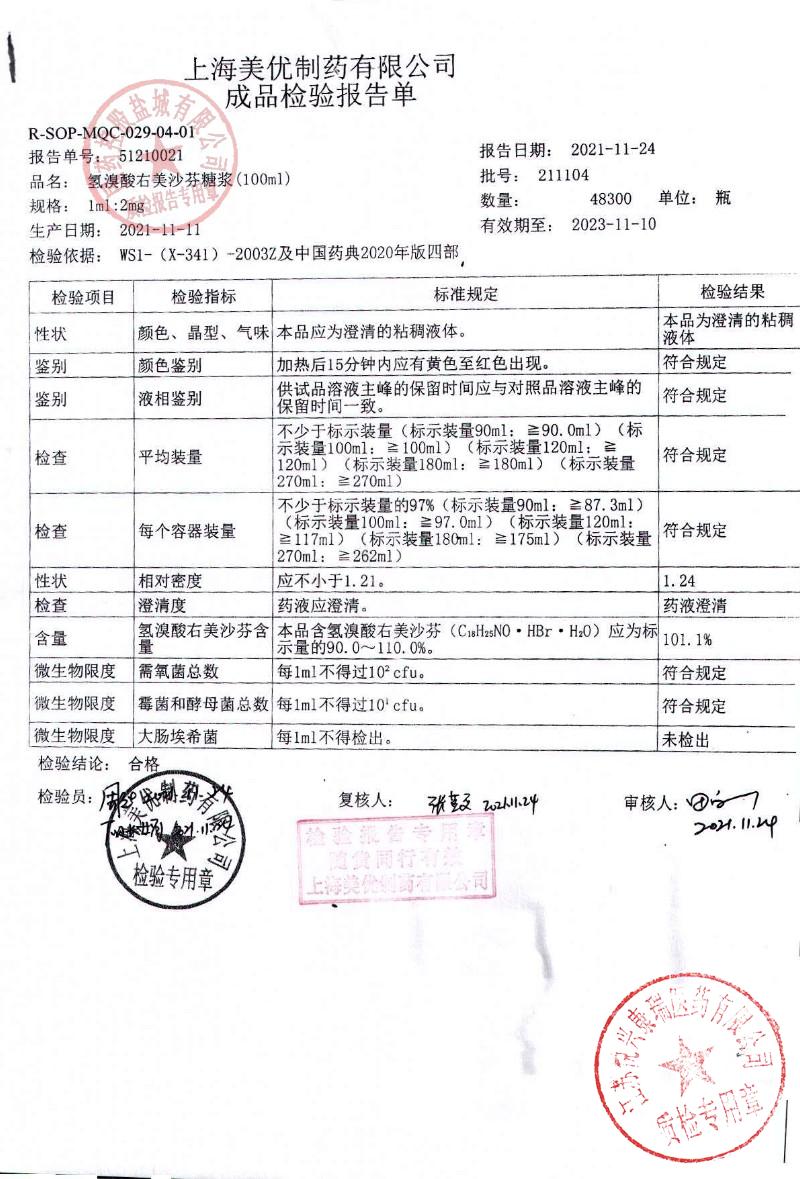 上海美优制药有限公司
成品检验报告单
R-SOP-MQC-029-04-01
报告单号: 51210021
报告日期: 2021-11-24
品名: 氢溴酸右美沙芬糖浆(100ml)
批号: 211104
规格: 1ml:2mg
数量: 48300 单位: 瓶
生产日期: 2021-11-11
有效期至: 2023-11-10
检验依据: WS1-（X-341）-2003Z及中国药典2020年版四部
检验项目 检验指标 标准规定 检验结果
性状 颜色、晶型、气味 本品应为澄清的粘稠液体。 本品为澄清的粘稠
液体
鉴别 颜色鉴别 加热后15分钟内应有黄色至红色出现。 符合规定
鉴别 液相鉴别 供试品溶液主峰的保留时间应与对照品溶液主峰的
保留时间一致。 符合规定
检查 平均装量 不少于标示装量（标示装量90ml：≧90.0ml）（标
示装量100ml：≧100ml）（标示装量120ml：≧
120ml）（标示装量180ml：≧180ml）（标示装量
270ml：≧270ml） 符合规定
检查 每个容器装量 不少于标示装量的97%（标示装量90ml：≧87.3ml）
（标示装量100ml：≧97.0ml）（标示装量120ml：
≧117ml）（标示装量180ml：≧175ml）（标示装量
270ml：≧262ml） 符合规定
性状 相对密度 应不小于1.21。 1.24
检查 澄清度 药液应澄清。 药液澄清
含量 氢溴酸右美沙芬含
量 本品含氢溴酸右美沙芬（C₁₈H₂₅NO·HBr·H₂O）应为标
示量的90.0～110.0%。 101.1%
微生物限度 需氧菌总数 每1ml不得过10²cfu。 符合规定
微生物限度 霉菌和酵母菌总数 每1ml不得过10¹cfu。 符合规定
微生物限度 大肠埃希菌 每1ml不得检出。 未检出
检验结论: 合格
检验员:
复核人: 2021.11.24
审核人:
2021.11.24
上海美优制药有限公司
检验专用章
检验报告专用章
随货同行有效
上海美优制药有限公司
质检报告专用章
质检专用章